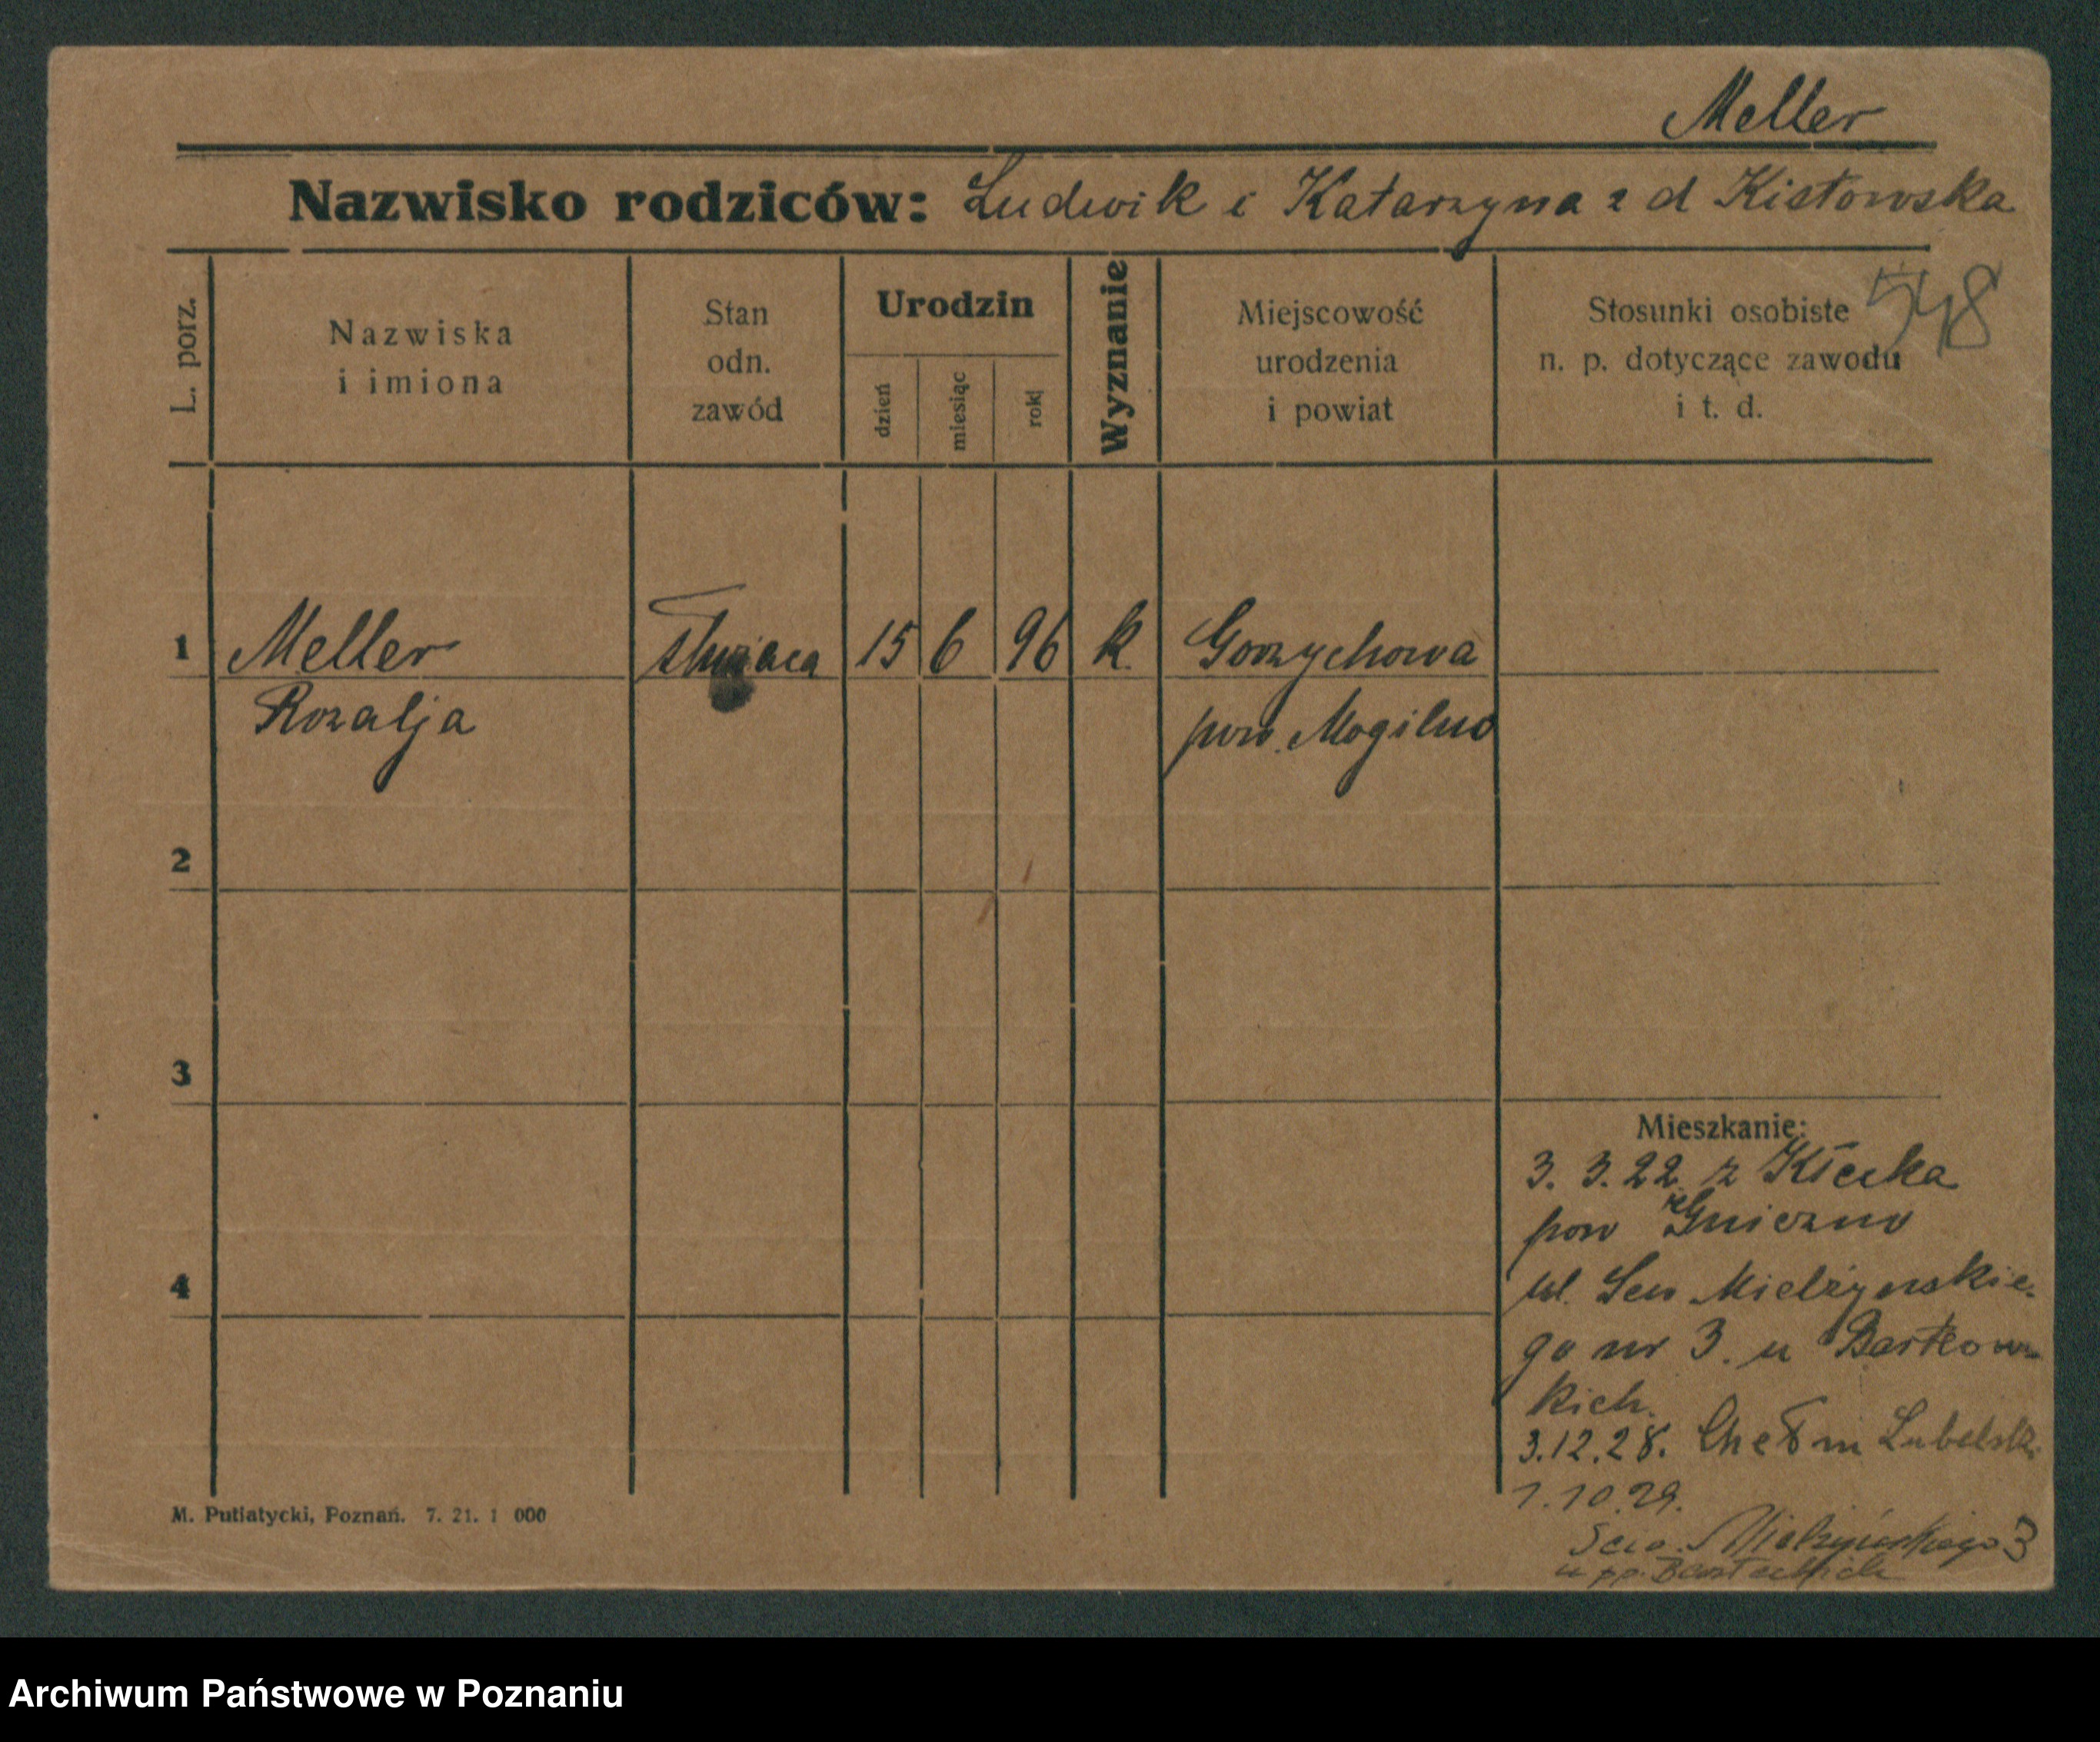 Meller
Nazwisko rodziców: Ludwik i Katarzyna z d Kistowska
548
L. porz.
Nazwiska
i imiona
Stan
odn.
zawód
Urodzin
dzień
miesiąc
rok
Wyznanie
Miejscowość
urodzenia
i powiat
Stosunki osobiste
n. p. dotyczące zawodu
i t. d.
1 Meller służąca 15 6 96 k. Gorzychowa
Rozalja pow. Mogilno
2
3
4
Mieszkanie:
3. 3. 22. z Kłecka
pow Gniezno
ul. Sew Mielżyńskie-
go nr 3. u Bartkows-
kich.
3.12.28. Chełm Lubelsk.
1.10.29.
Mielżyńskiego 3
u pp.
M. Putiatycki, Poznań. 7. 21. 1 000
Archiwum Państwowe w Poznaniu